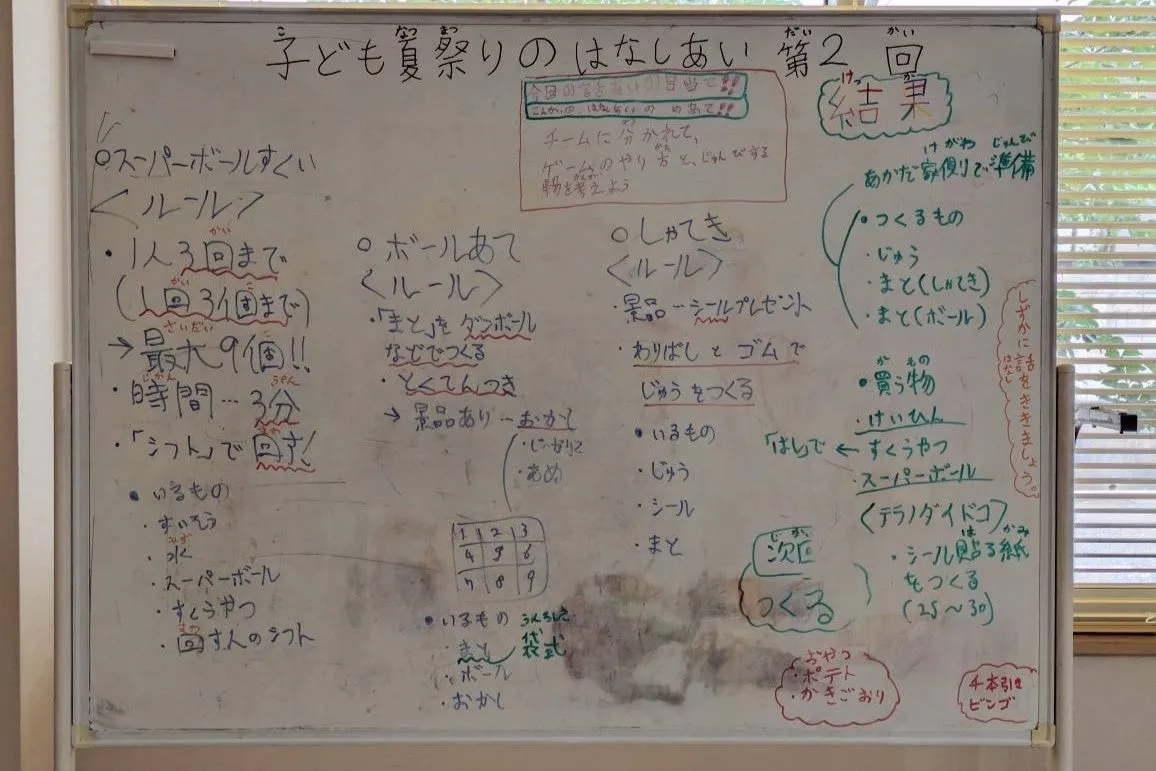 子ども夏祭りのはなしあい 第2回
チームに分かれて、
ゲームのやり方と、じゅんびする
物を考えよう
○スーパーボールすくい
<ルール>
・1人3回まで
(1回3個まで)
→最大9個!!
・時間…3分
・「シフト」で回す!
・いるもの
・すいそう
・水
・スーパーボール
・すくうやつ
・回す人のシフト
○ボールあて
<ルール>
・「まと」をダンボール
などでつくる
・とくてんつき
→景品あり…おかし
・あめ
1 2 3
4 5 6
7 8 9
・いるもの
・まと
袋式
・ボール
・おかし
○しゃてき
<ルール>
・景品…シールプレゼント
・わりばしとゴムで
じゅうをつくる
・いるもの
・じゅう
・シール
・まと
結果
あかだ家側りで準備
・つくるもの
・じゅう
・まと(しゃてき)
・まと(ボール)
・買う物
・けいひん
「はし」で ← すくうやつ
・スーパーボール
・シール貼る紙
をつくる
(25～30)
しずかに話をききましょう。
次回
つくる
おやつ
・ポテト
・かきごおり
千本引き
ビンゴ